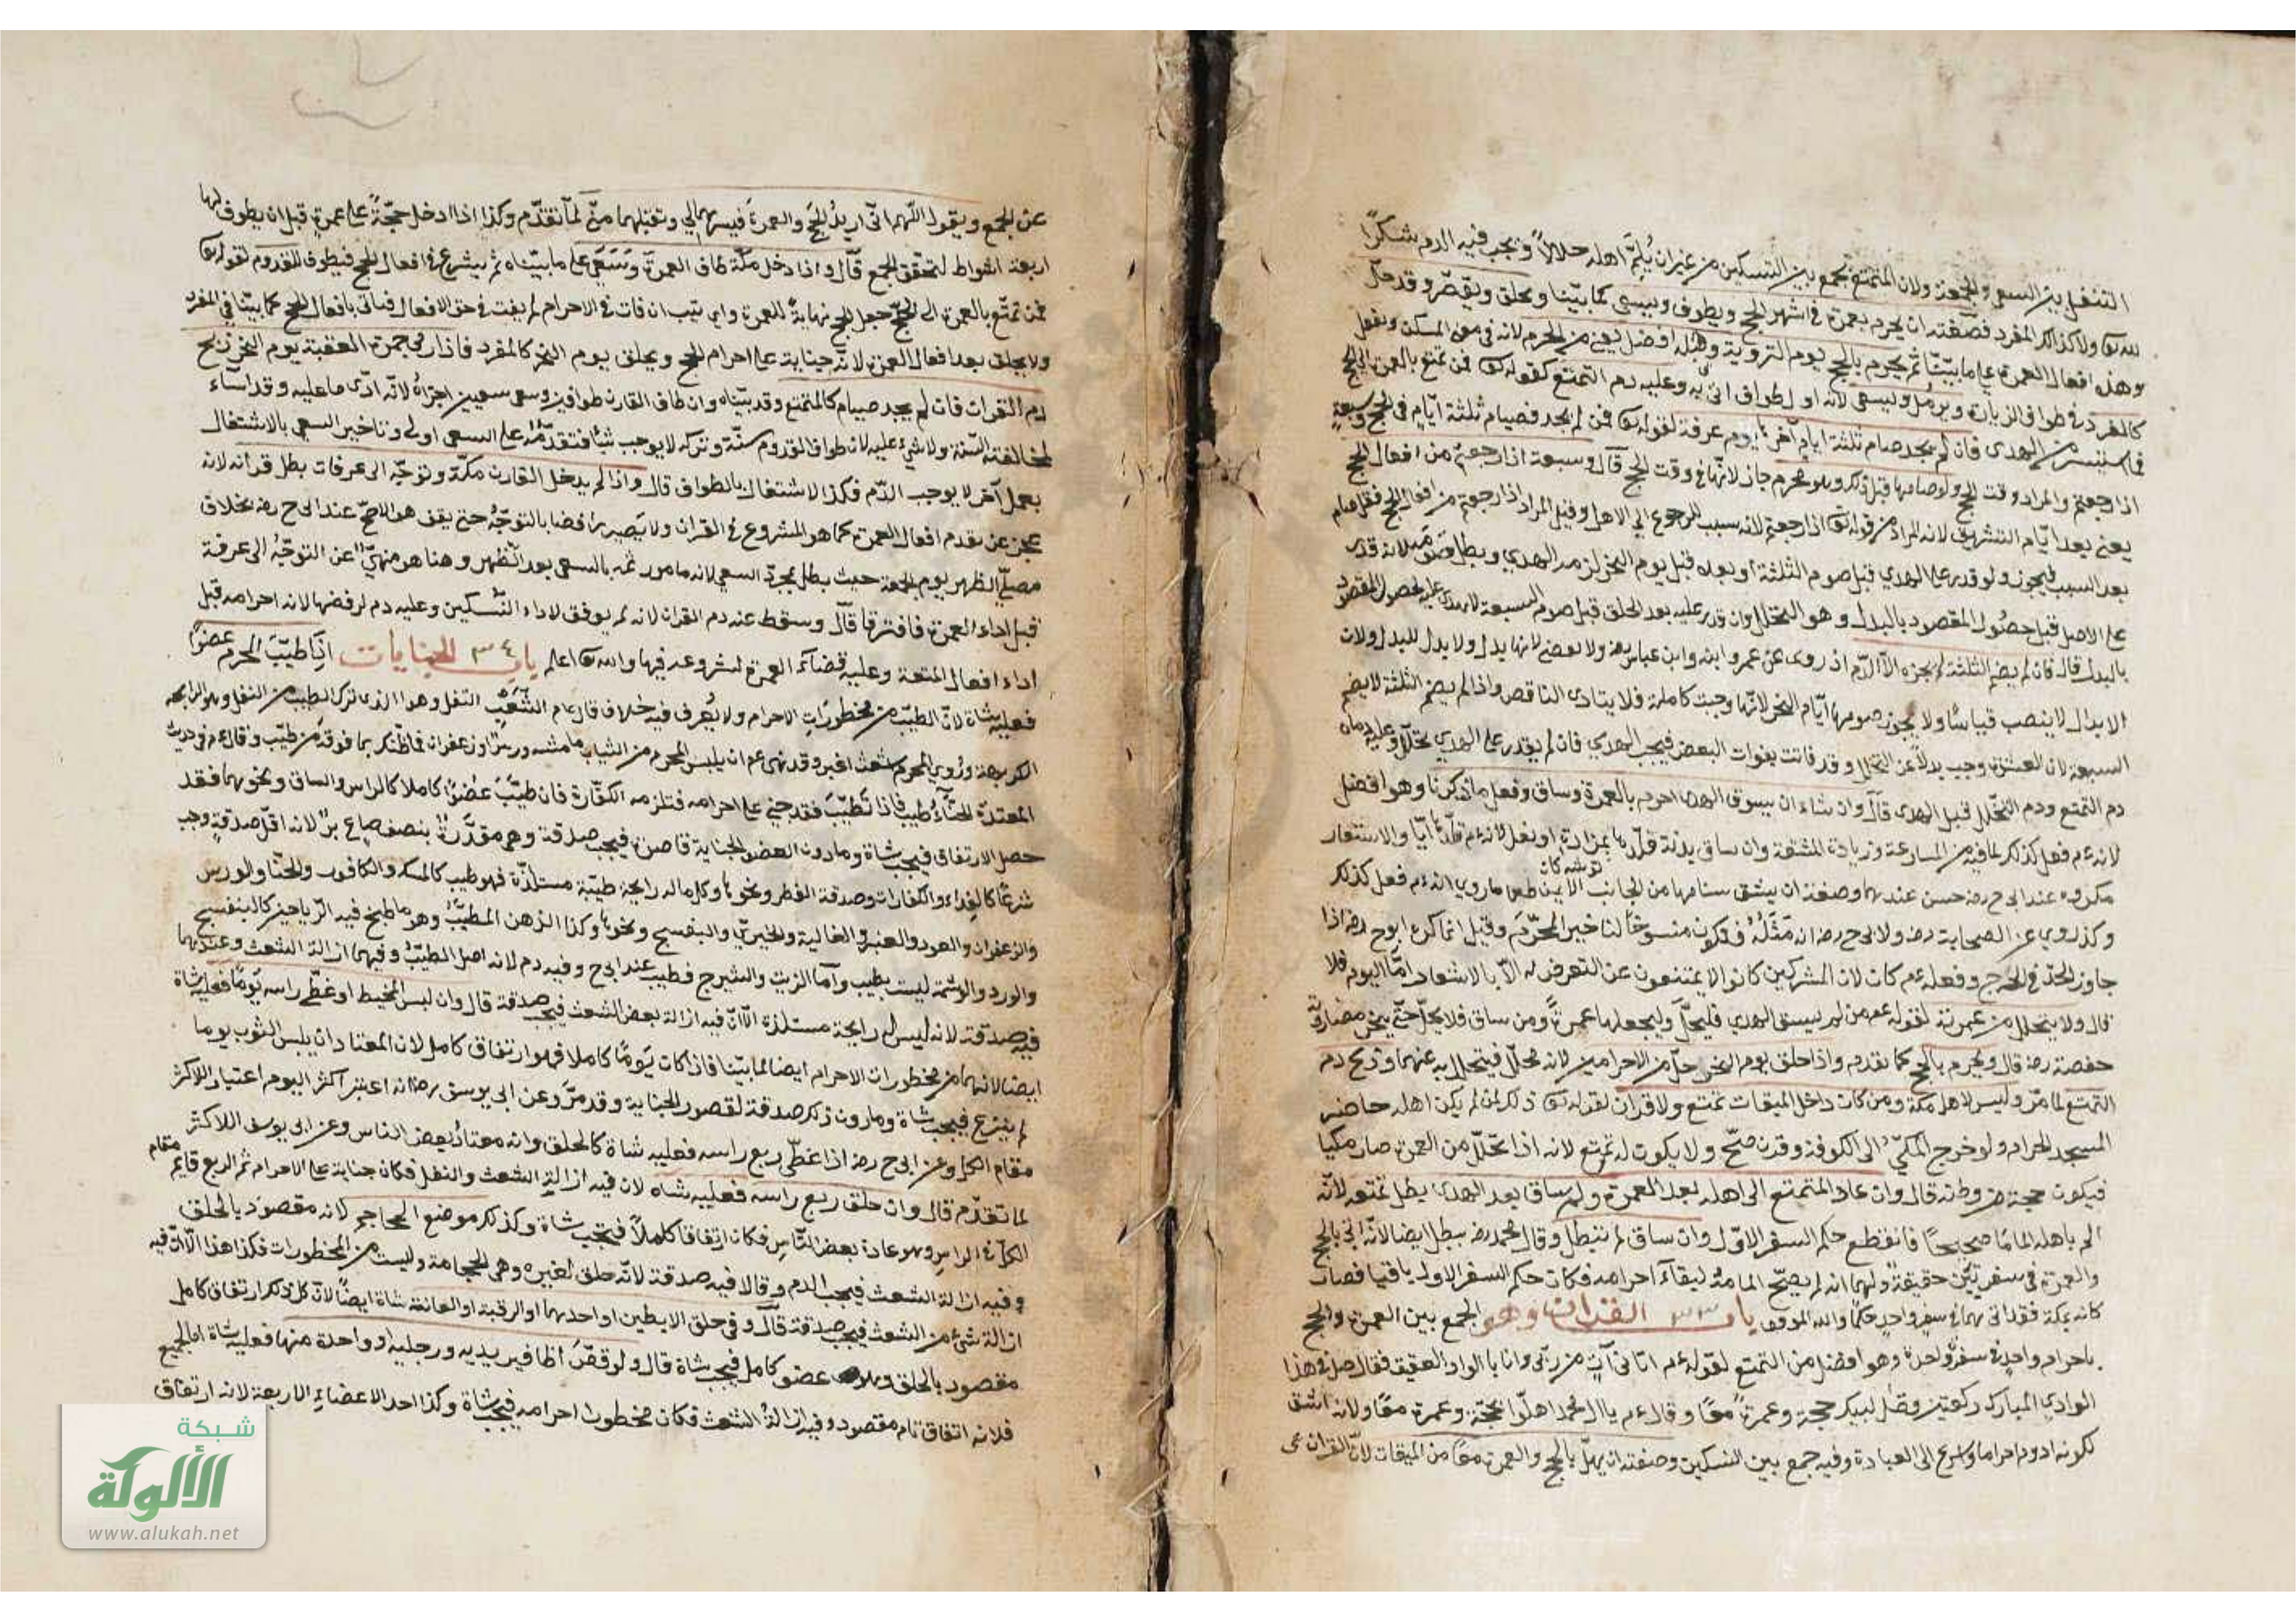 التنفل بين السعي والجمعة ولان المتمتع يجمع بين النسكين من غير ان يلم اهله حلالا ويجب فيه الدم شكرا
لله تع ولا كذلك المفرد فصفته ان يحرم بعمرة في اشهر الحج ويطوف ويسعى كما بينا ويحلق او يقصر وقد حل
وهذه افعال العمرة على ما بينا ثم يحرم بالحج يوم التروية وقبله افضل يعني من الحرم لانه في معنى المسكن ويفعل
كالمفرد في طواف الزيارة ويرمل ويسعى لانه اول طواف اتى به وعليه دم التمتع كقوله تع فمن تمتع بالعمرة الى الحج
فما استيسر من الهدى فان لم يجد صام ثلثة ايام آخرها يوم عرفة لقوله تع فمن لم يجد فصيام ثلثة ايام في الحج وسبعة
اذا رجعتم والمراد وقت الحج ولو صامها قبل ذلك وهو محرم جاز لانها في وقت الحج قال وسبعة اذا رجعتم من افعال الحج
يعني بعد ايام التشريق لانه المراد من قوله تع اذا رجعتم لانه سبب للرجوع الى الاهل وقيل المراد اذا رجعتم من افعال الحج فقد صام
بعد السبب فيجوز ولو قدر على الهدي قبل صوم الثلثة او بعده قبل يوم النحر لزمه الهدي وبطل صومه لانه قدر
على الاصل قبل حصول المقصود بالبدل وهو التحلل وان قدر عليه بعد الحلق قبل صوم السبعة لا هدي عليه لحصول المقصود
بالبدل قال فان لم يصم الثلثة لم يجزه الا الدم اذ روى عن عمر وابنه وابن عباس رضه ولا يقضى لانها بدل ولا بدل للبدل ولان
الابدال لا ينصب قياسا ولا يجوز صومها ايام النحر لانها وجبت كاملة فلا يتادى الناقص واذا لم يصم الثلثة لا يصم
السبعة لان العشرة وجب بدلا عن التحلل وقد فاتت بفوات البعض فيجب الهدي فان لم يقدر على الهدي تحلل وعليه دمان
دم التمتع ودم التحلل قبل الهدى قال وان شاء ان يسوق الهدى احرم بالعمرة وساق وفعل ما ذكرنا وهو افضل
لانه عم فعل كذلك لما فيه من المسارعة وزيادة المشقة وان ساق بدنة قلدها بمزادة او نعل لانه عم قلدها اياا والاشعار
مكروه عند ابي ح رضه حسن عندهما وصفته ان يشق سنامها من الجانب الايمن طعنا ماروي انه عم فعل كذلك
وكذا روي عن الصحابة رضه ولابي ح رضه انه مثلة فيكون منسوخا لتاخير المحرم وقيل انما كره ابو ح رضه اذا
جاوز الحد في الجرح وفعله عم كان لان المشركين كانوا لا يمتنعون عن التعرض له الا بالاشعار اما اليوم فلا
قال ولا يتحلل من عمرته لقوله عم من لم يسق الهدي فليحل وليجعلها عمرة ومن ساق فلا يحل حتى ينحر
حفصة رضه قال ويحرم بالحج كما تقدم واذا حلق يوم النحر حل من الاحرامين لانه محلل فيتحلل به عنهما وذبح دم
التمتع لما مر وليس لاهل مكة ومن كان داخل الميقات تمتع ولا قران لقوله تع ذلك لمن لم يكن اهله حاضر
المسجد الحرام ولو خرج المكي الى الكوفة وقرن صح ولا يكون له تمتع لانه اذا تحلل من العمرة صار مكيا
فيكون حجة من وطنه قال وان عاد المتمتع الى اهله بعد العمرة ولم ساق بعد الهدى بطل تمتعه لانه
الم باهله الماما صحيحا فانقطع حكم السفر الاول وان ساق لم تبطل وقال محمد رضه يبطل ايضا لانه اتى بالحج
والعمرة في سفرتين حقيقة ولهما انه لم يصح المامه لبقاء احرامه فكان حكم السفر الاول باقيا فصار
كانه بمكة فقد اتى بهما في سفر واحد حكما والله الموفق باب ٣٣ القران وهو الجمع بين العمرة والحج
باحرام واحد في سفرة واحدة وهو افضل من التمتع لقوله عم اتاني آت من ربي وانا بالوادي العقيق فقال صل في هذا
الوادي المبارك ركعتين وقل لبيك حجة وعمرة معا وقال عم يا ال محمد اهلوا بحجة وعمرة معا ولانه اشق
لكونه ادوم احراما واسرع الى العبادة وفيه جمع بين النسكين وصفته ان يهل بالحج والعمرة معا من الميقات لان القران
عن الجمع ويقول اللهم اني اريد الحج والعمرة فيسرهما لي وتقبلهما مني لما تقدم وكذا اذا ادخل حجة على عمرة قبل ان يطوف لها
اربعة اشواط لتحقق الجمع قال واذا دخل مكة طاف العمرة وسعى على ما بيناه ثم يشرع في افعال الحج فيطوف للقدوم لقوله تع
فمن تمتع بالعمرة الى الحج جعل الحج نهاية للعمرة والترتيب ان فات في الاحرام لم يفت في حق الافعال فياتى بافعال الحج كما بينا في المفرد
ولا يحلق بعد افعال العمرة لانه جناية على احرام الحج ويحلق يوم النحر كالمفرد فاذا رمى جمرة العقبة يوم النحر ذبح
دم القران فان لم يجد صام كالمتمتع وقد بيناه وان طاف القارن طوافين وسعى سعيين اجزاه لانه ادى ما عليه وقد اساء
لمخالفته السنة ولا شيء عليه لان طواف القدوم سنة وتركه لا يوجب شيئا فتقدمه على السعي اولى وتاخير السعي بالاشتغال
بعمل آخر لا يوجب الدم فكذا الاشتغال بالطواف قال واذا لم يدخل القارن مكة وتوجه الى عرفات بطل قرانه لانه
عجز عن تقدم افعال العمرة كما هو المشروع في القران ولا يصير رافضا بالتوجه حتى يقف هو الاصح عند ابي ح رضه بخلاف
مصلي الظهر يوم الجمعة حيث بطل بمجرد السعي لانه مامور ثمه بالسعي بعد الظهر وهنا هو منهي عن التوجه الى عرفة
قبل اداء العمرة فافترقا قال وسقط عنه دم القران لانه لم يوفق لاداء النسكين وعليه دم لرفضها لانه احرامه قبل
اداء افعال المتعة وعليه قضاء العمرة لشروعه فيها والله تع اعلم باب ٣٤ الجنايات اذا طيب المحرم عضوا
فعليه شاة لان الطيب من محظورات الاحرام ولا يعرف فيه خلاف قال عم الشعث التفل وهو الذى ترك الطيب من التفل وهو الرايحة
الكريهة وروي المحرم شعث اغبر وقد نهى عم ان يلبس المحرم من الثياب ما مسه ورس او زعفران فما ظنك بما فوقه من طيب وقال عم في حديث
المعتدة الحناء طيب فاذا تطيب فقد جني على احرامه فتلزمه الكفارة فان طيب عضوا كاملا كالراس والساق ونحوهما فقد
حصل الارتفاق فيجب شاة وما دون العضو الجناية قاصرة فيجب صدقة وهو مقدرة بنصف صاع بر لانه اقل صدقة وجب
شرعا كالفداء والكفارات وصدقة الفطر ونحوها وكل ماله رايحة طيبة مستلذة فهو طيب كالمسك والكافور والحنا والورس
والزعفران والعود والعنبر والغالية والخيري والبنفسج ونحوها وكذا الدهن المطيب وهو ما طبخ فيه الرياحين كالبنفسج
والورد والوشمة ليست بطيب واما الزيت والشيرج فطيب عند ابي ح وفيه دم لانه اصل الطيب وفيهما ازالة الشعث وعندهما
فيه صدقة لانه ليس له رايحة مستلذة الا ان فيه ازالة بعض الشعث فيجب صدقة قال وان لبس المخيط او غطى راسه يوما فعليه شاة
ايضا لانهما من محظورات الاحرام ايضا لما بينا فاذا كان يوما كاملا فهو ارتفاق كامل لان المعتاد ان يلبس الثوب يوما
ثم ينزع فيجب شاة وما دون ذلك صدقة لقصور الجناية وقد مر وعن ابى يوسف رضه انه اعتبر اكثر اليوم اعتبار للاكثر
مقام الكل وعن ابي ح رضه اذا غطى ربع راسه فعليه شاة كالحلق وانه معتاد بعض الناس وعن ابى يوسف الاكثر
لما تقدم قال وان حلق ربع راسه فعليه شاه لان فيه ازالة الشعث والتفل فكان جناية على الاحرام ثم الربع قايم مقام
الكل في الراس وهو عادة بعض الناس فكان ارتفاقا كاملا فتجب شاة وكذلك موضع المحاجم لانه مقصود بالحلق
وفيه ازالة الشعث فيجب الدم وقالا فيه صدقة لانه حلق لغيره وهي الحجامة وليست من المحظورات فكذا هذا الا ان فيه
ازالة شئ من الشعث فيجب صدقة قال وفي حلق الابطين او احدهما او الرقبة او العانة شاة ايضا لان كل ذلك ارتفاق كامل
مقصود بالحلق وهو عضو كامل فيجب شاة قال ولو قص اظافير يديه ورجليه او واحدة منها فعليه شاة اما الجميع
فلانه اتفاق تام مقصود وفيه ازالة الشعث فكان محظورا احرامه فيجب شاة وكذا احد الاعضاء الاربعة لانه ارتفاق
شبكة
الألوكة
www.alukah.net